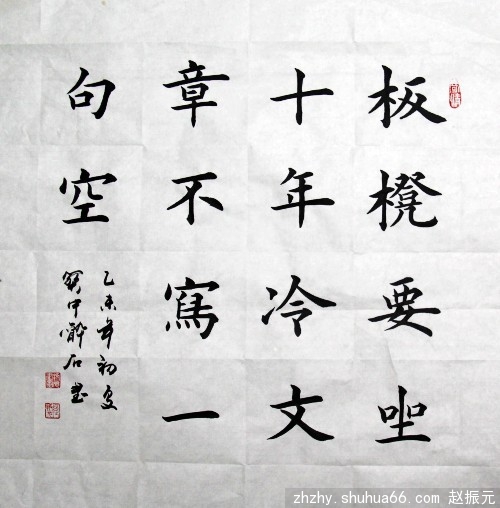 板櫈要坐
十年冷文
章不寫一
句空
乙未年初夏
関中醉石書
zhzhy.shuhua66.com 赵振元